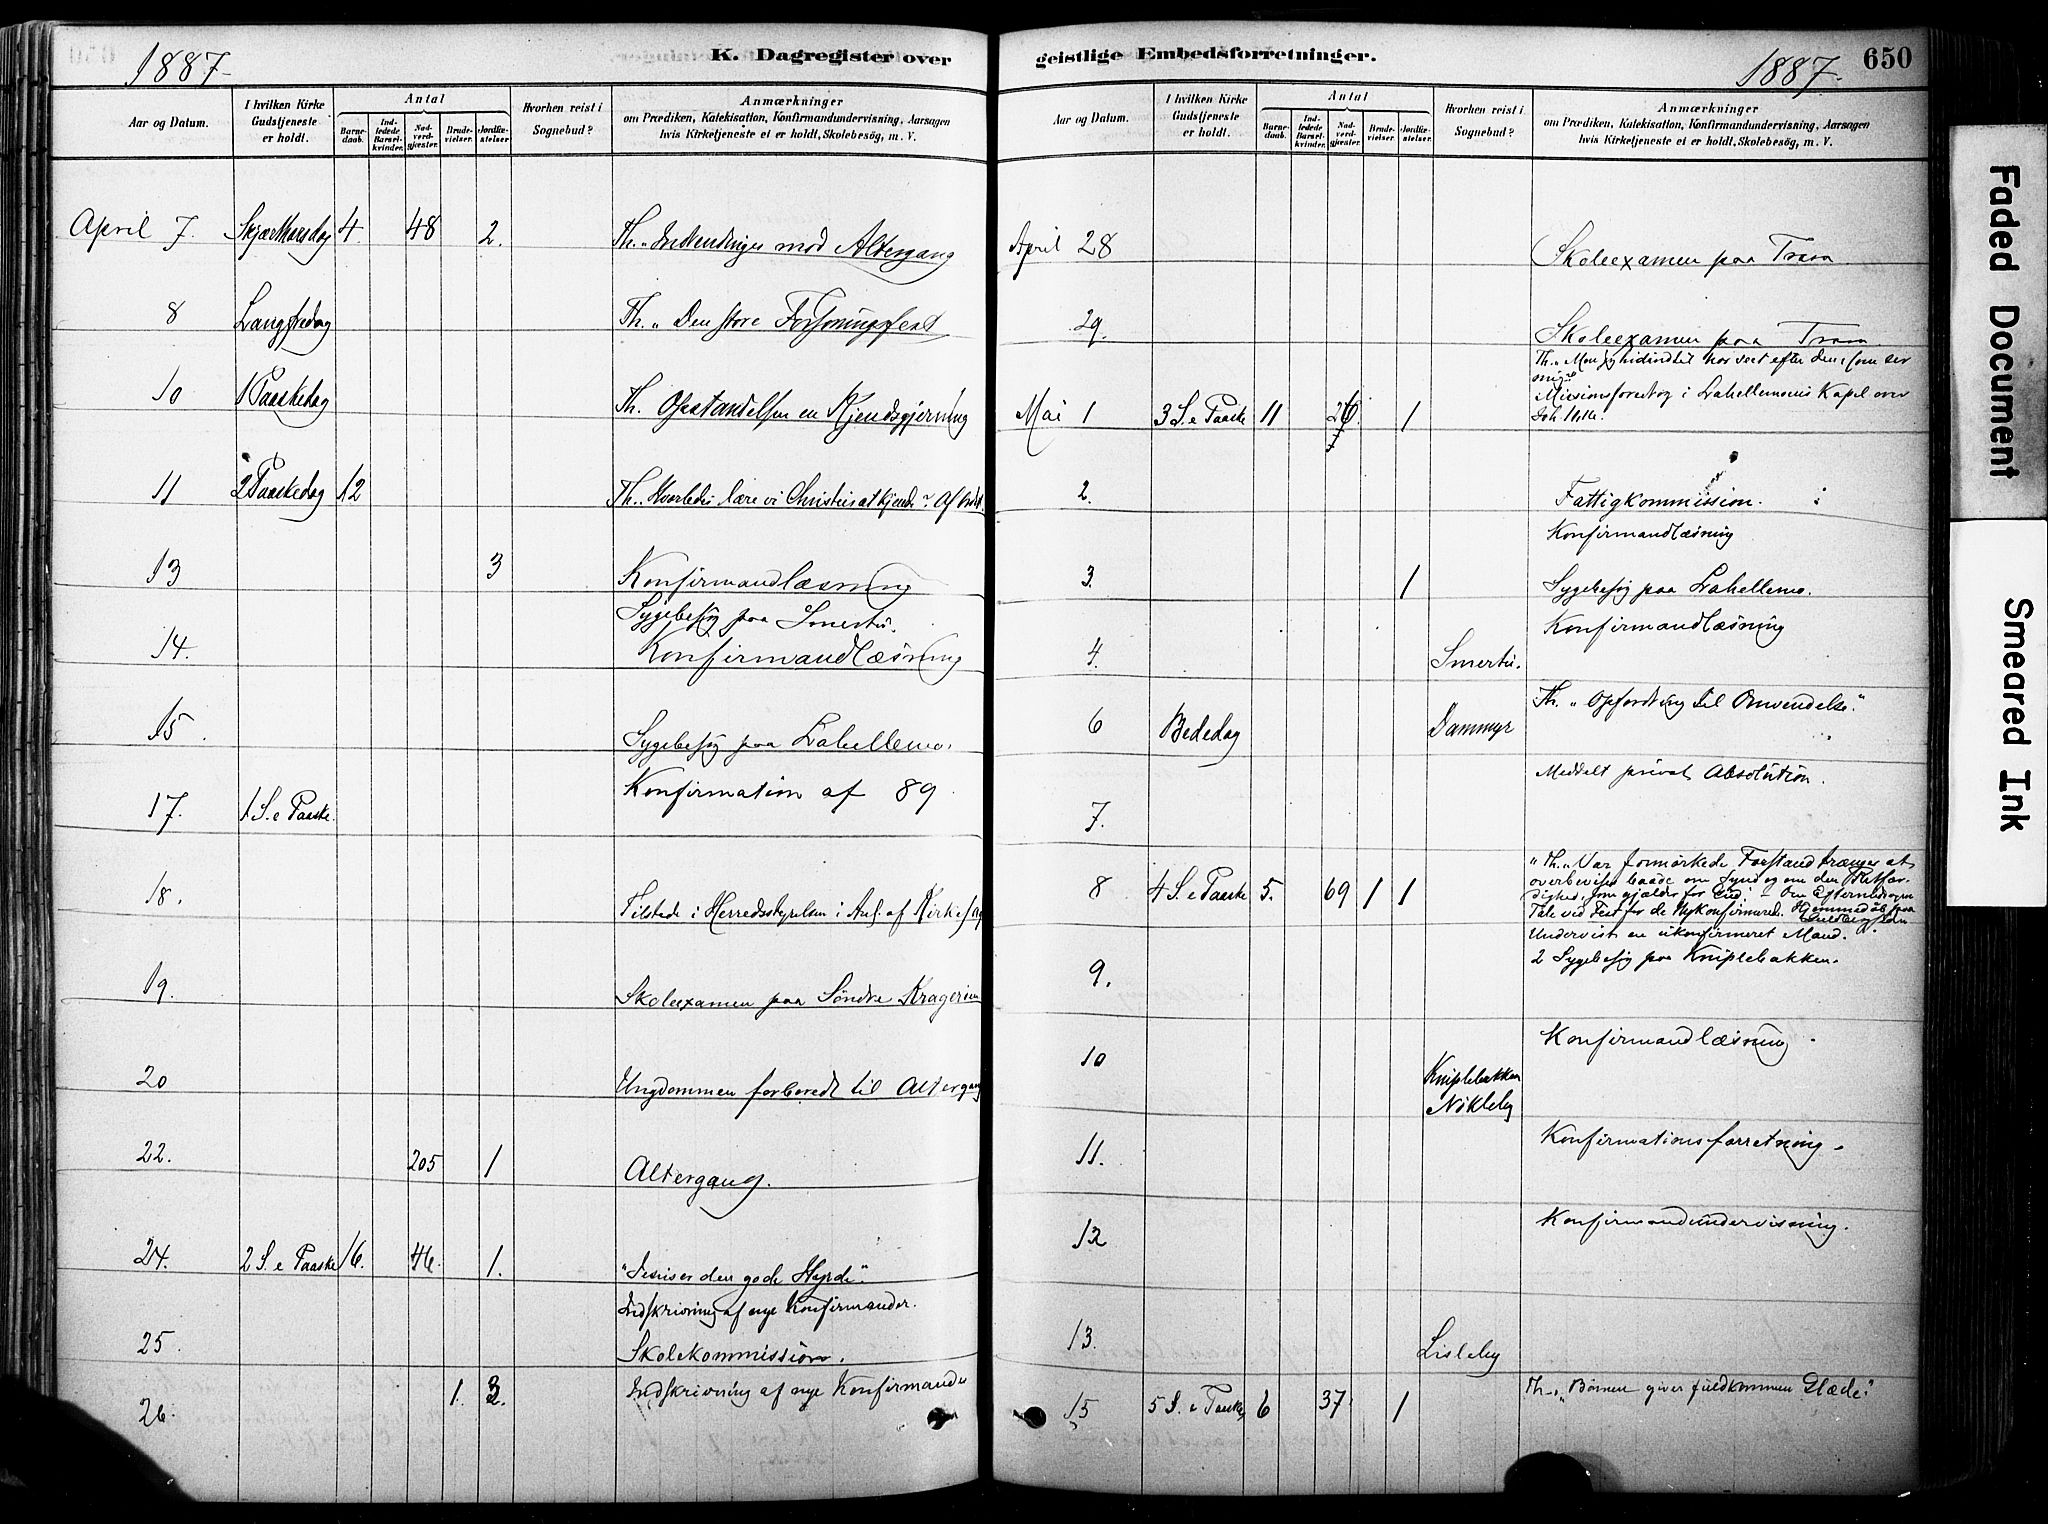 1887.
K. Dagregister over
Aar og Datum.
I hvilken Kirke Gudstjeneste er holdt.
Antal
Barnedaab.
Indledede Barselkvinder.
Nadverdgjæster.
Brudevielser.
Jordfæstelser
Hvorhen reist i Sognebud?
Anmærkninger
om Prædiken, Katekisation, Konfirmandundervisning, Aarsagen
hvis Kirketjeneste ei er holdt, Skolebesög, m. V.
April 7. Skjærthorsdag 4. 48 2. Th. " Indvendinger mod Altergang
8 Langfredag Th. " Den store Forsoningsfest
10 1 Paaskedag Th. Opstandelsen en Kjendsgjerning
11 2 Paaskedag 12 Th. " Hvorledes lære vi Christus at kjende? Af
13 3 Konfirmandlæsning
Sygebesög paa Smertu.
14. Konfirmandlæsning
15. Sygebesög paa Lahellemo.
Konfirmation af 89
17. 1 S. e Paaske.
18. Tilstede i Herredsstyrelsen i Anl. af Kirkesag
19. Skoleexamen paa Söndre Kragerøen
20 Ungdommen forberedt til Altergang
22. 205 1 Altergang.
24. 2 S. e Paaske 16. 46. 1. "Jesus er den gode Hyrde".
Indskrivning af nye Konfirmander.
25. Skolekommission.
26. 1. 3. Indskrivning af nye Konfirmander
geistlige Embedsforretninger.
1887.
650
Aar og Datum.
I hvilken Kirke Gudstjeneste er holdt.
Antal
Barnedaab.
Indledede Barselkvinder.
Nadverdgjæster.
Brudevielser.
Jordfæstelser.
Hvorhen reist i Sognebud?
Anmærkninger
om Prædiken, Katekisation, Konfirmandundervisning, Aarsagen
hvis Kirketjeneste ei er holdt, Skolebesög, m. V.
April 28 Skoleexamen paa Trara
29. Skoleexamen paa Trara
Missionsforedrag i Lahellemoens Kapel over
Mai 1 3 S. e Paaske 11 26 1 Joh.
2. Fattigkommission.
Konfirmandlæsning
3. 1 Sygebesög paa Lahellemo.
Konfirmandlæsning
4. Smertu.
Th. " Opfordring til Omvendelse."
6 Bededag Dammyr
Meddelt privat Absolution.
7.
"Th. " Vor formörkede Forstand trænger at
overbevises baade om Synd og om den Retfær-
dighed, som gjælder for Gud - Om Eftermiddagen
8 4 S. e Paaske 5. 69 1 1 Tale ved Fest for de Nykonfirmerede. Hjemmedaab paa
Undervist en ukonfirmeret Mand.
2 Sygebesög paa Kniplebakken.
9.
Konfirmandlæsning.
10 Kniplebakken
Nökleby
Konfirmationsforretning.
11.
Konfirmandundervisning.
12
13. Lisleby
Th. " Bönnen giver fuldkommen Glæde."
15 5 S. e Paaske 6 37 1
Faded Document
Smeared Ink